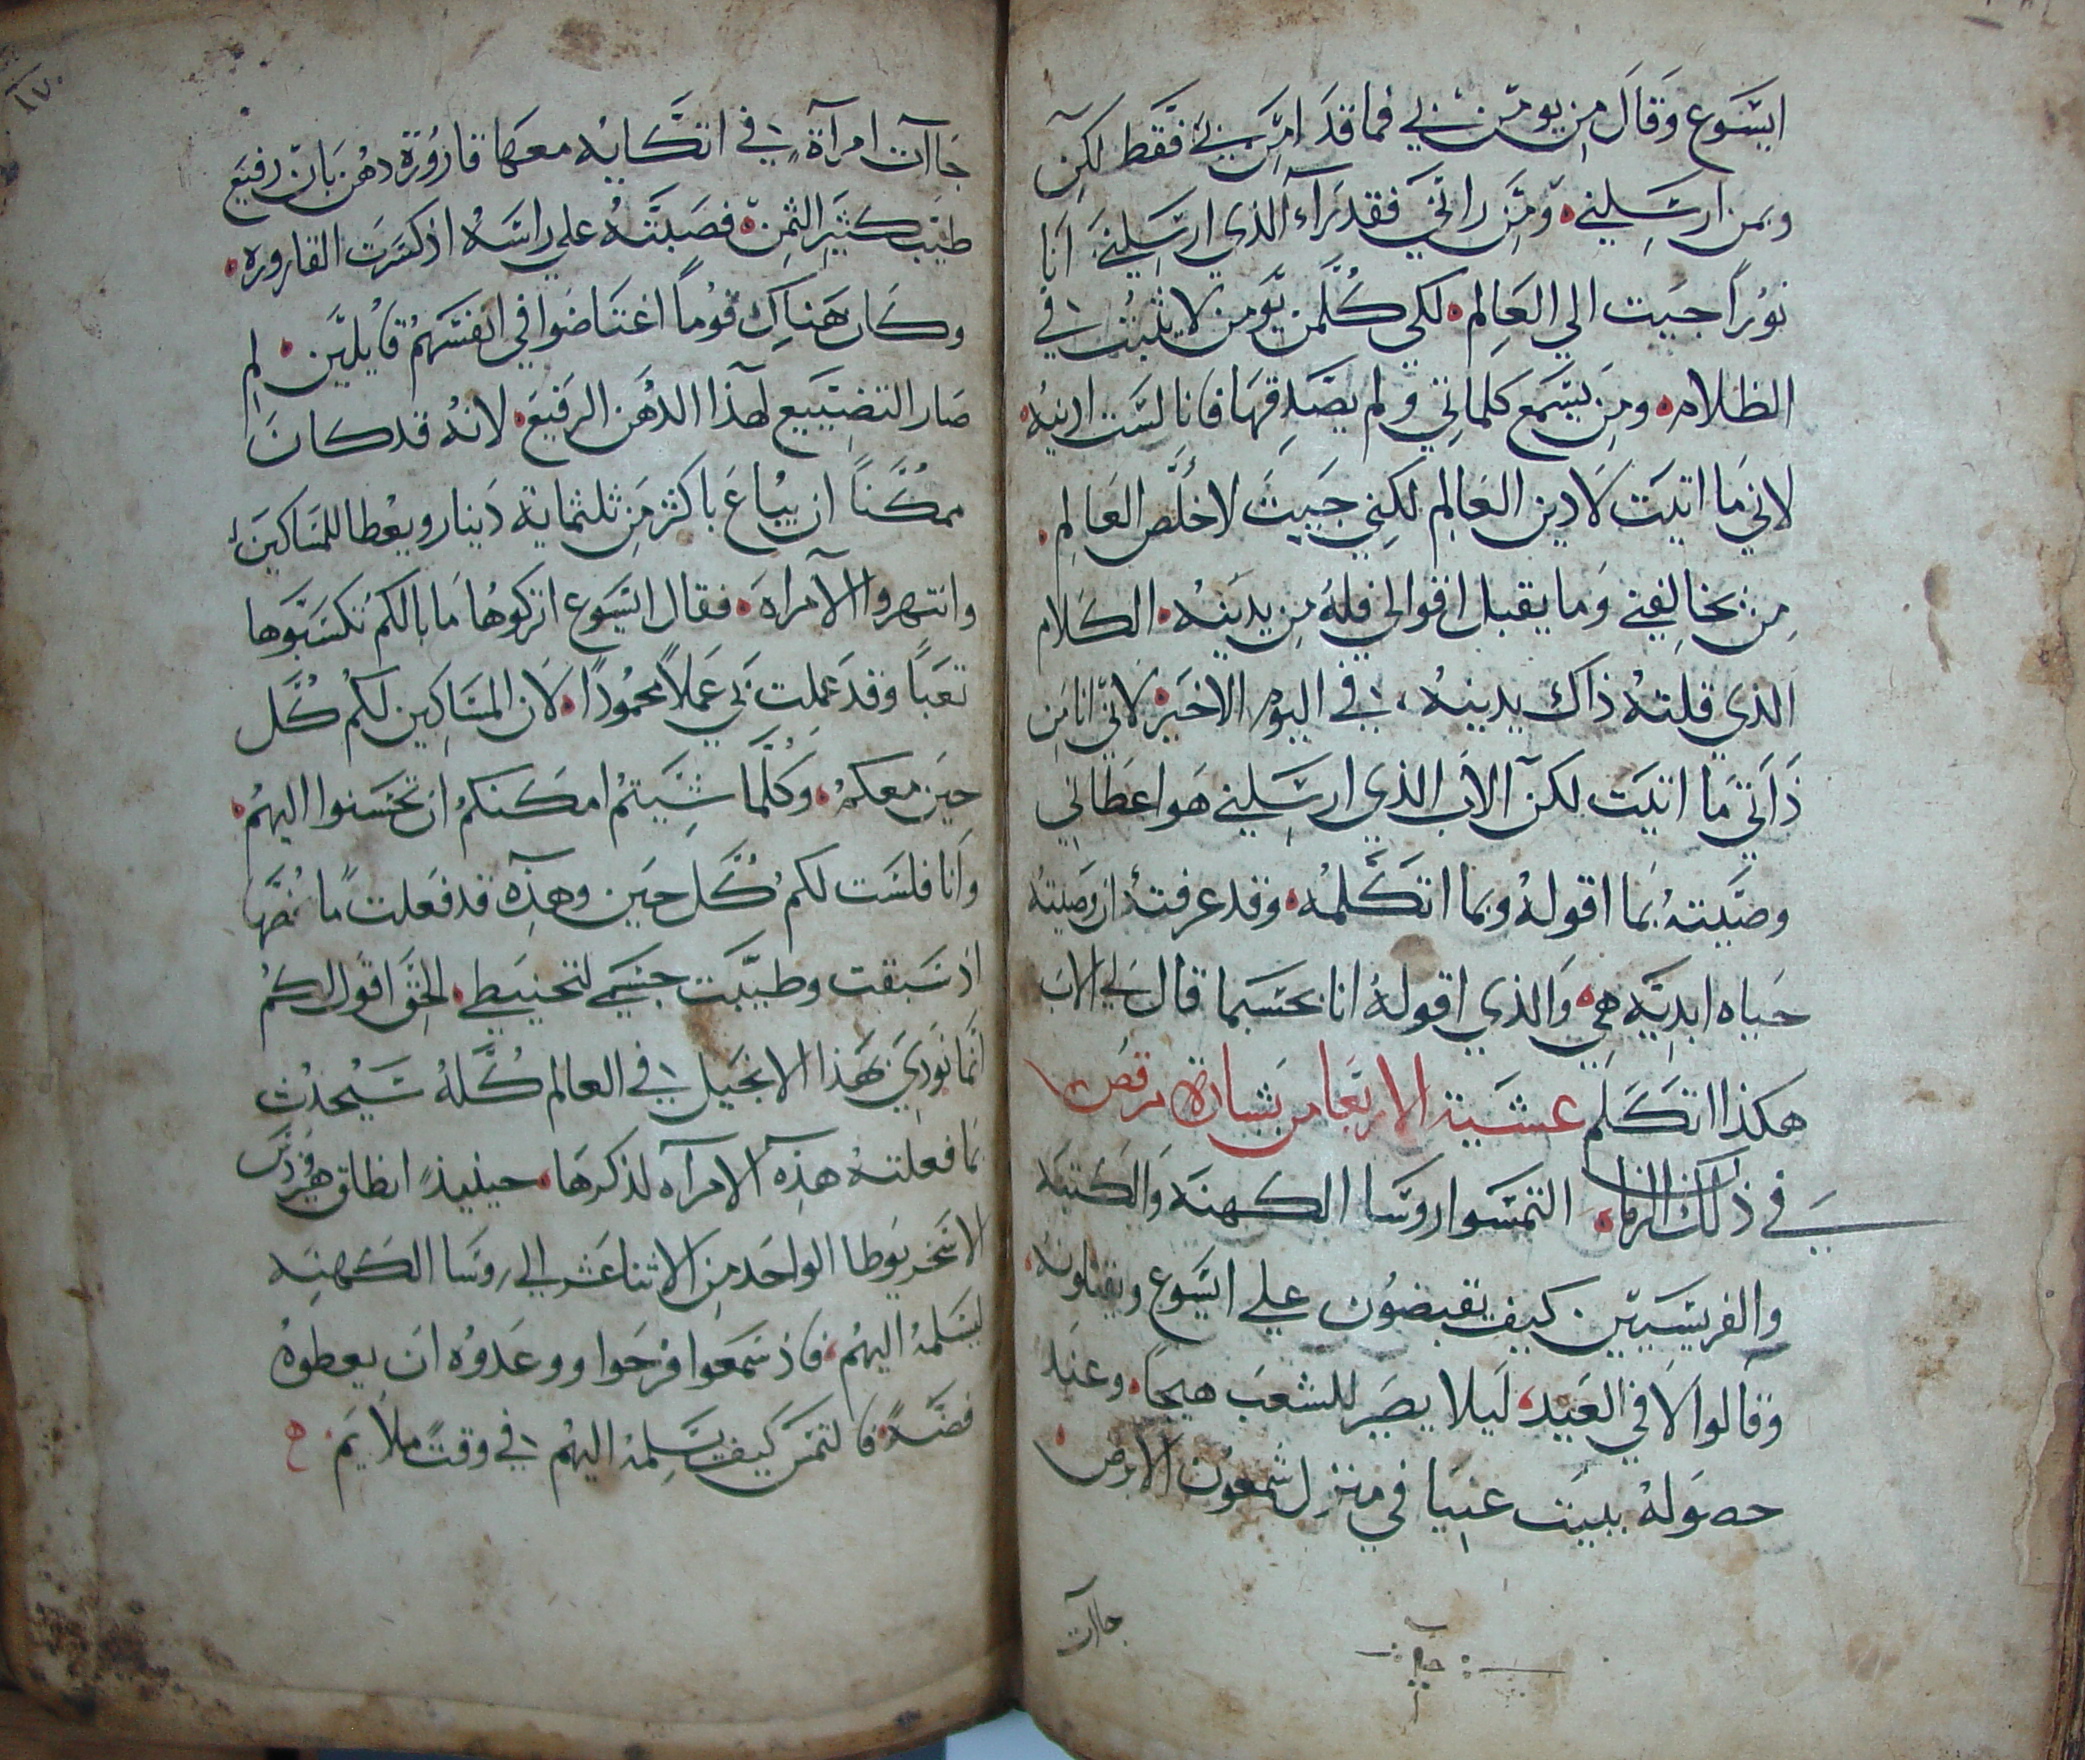 ايسوع وقال من يومن بي فما قد امن بي فقط لكن
وبمن ارسلني ومن راني فقد رآء الذي ارسلني انا
نورًا جيت الي العالم لكي كلمن يومن لا يثبت في
الظلام ومن يسمع كلماتي ولم يصدقها فانا لست ادنيه
لاني ما اتيت لادين العالم لكني جييت لاخلص العالم
من يخالفني وما يقبل اقوالي فله من يدينه الكلام
الذي قلته ذاك يدينه في اليوم الاخير لاني انا من
ذاتي ما اتيت لكن الاب الذي ارسلني هو اعطاني
وصيته بما اقوله وبما اتكلمه وقد عرفت ان وصيته
حياه ابديه هي والذي اقوله انا بحسبما قال لي الاب
هكذا اتكلم عشية الاربعا من بشارة مرقص
في ذلك الزمان التمسوا روسا الكهنه والكتبه
والفريسيين كيف يقبضون علي ايسوع ويقتلونه
وقالوا لا في العيد ليلا يصير للشعب هيجا وعند
حصوله ببيت عنيا في منزل شمعون الابرص
جاآت
١٧٠
جاآت امرآة في اتكايه معها قارورة دهن بان رفيع
طيب كثير الثمن فصبته علي راسه اذ كسرت القاروره
وكان هناك قومًا اغتاضوا في انفسهم قايلين لم
صار التضييع لهذا الدهن الرفيع لانه قد كان
ممكنًا ان يباع باكثر من ثلثماية دينار ويعطا للمساكين
وانتهروا الامراه فقال ايسوع اتركوها ما بالكم تكسبوها
تعبًا وقد عملت بي عملاً محمودًا لان المساكين لكم كل
حين معكم وكلما شييتم امكنكم ان تحسنوا اليهم
وانا فلست لكم كل حين وهذه قد فعلت ما خصها
اذ سبقت وطيبت جسمي لتحنيطي الحق اقول لكم
انما نودي بهذا الانجيل في العالم كله سيحدث
بما فعلته هذه الامرآه لذكرها حينيذٍ انطلق يهوذس
الاسخريوطا الواحد من الاثناعشر الي روسا الكهنه
ليسلمه اليهم فاذ سمعوا فرحوا ووعدوه ان يعطوه
فضه فالتمس كيف يسلمه اليهم في وقت ملايم